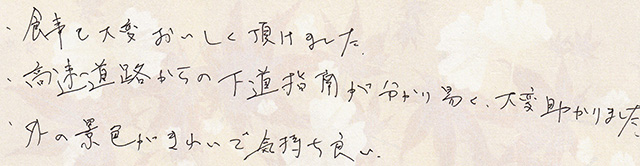 ・食事も大変おいしく頂けました。
・高速道路からの下道指南が分かり易く、大変助かりました
・外の景色がきれいで気持ち良い。